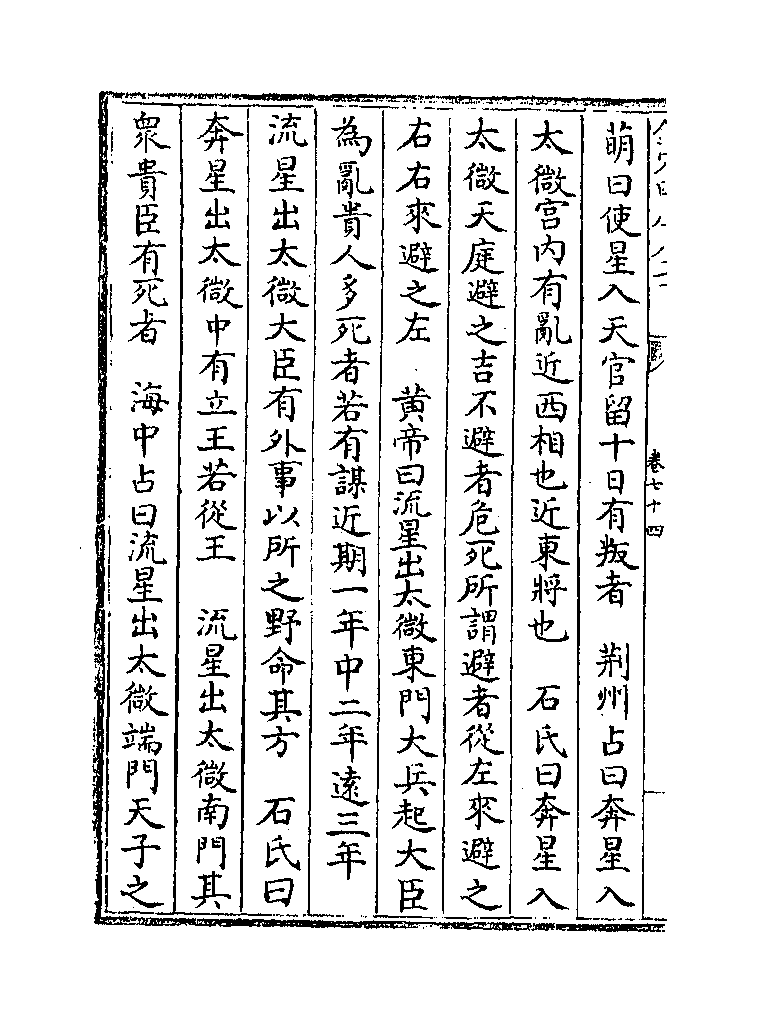 萌曰使星入天官留十日有叛者　荆州占曰奔星入
太微宫内有亂近西相也近東將也　石氏曰奔星入
太微天庭避之吉不避者危死所謂避者從左來避之
右右來避之左　黄帝曰流星出太微東門大兵起大臣
為亂貴人多死者若有謀近期一年中二年逺三年
流星出太微大臣有外事以所之野命其方　石氏曰
奔星出太微中有立王若從王　流星出太微南門其
衆貴臣有死者　海中占曰流星出太微端門天子之
卷七十四